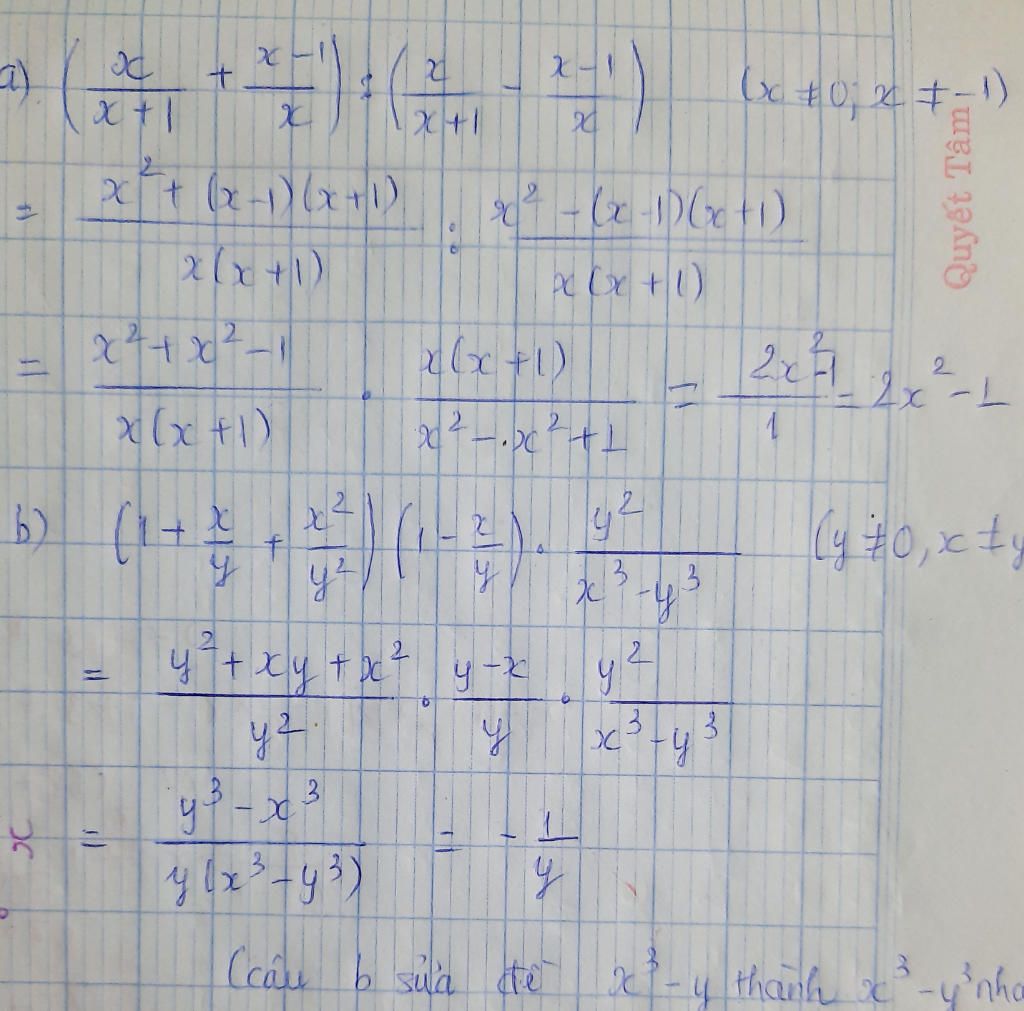 a) (x/(x+1) + (x-1)/x) : (x/(x+1) - (x-1)/x) (x ≠ 0; x ≠ -1)
= (x² + (x-1)(x+1))/(x(x+1)) : (x² - (x-1)(x+1))/(x(x+1))
= (x² + x² - 1)/(x(x+1)) . (x(x+1))/(x² - x² + 1) = (2x² - 1)/1 = 2x² - 1
b) (1 + x/y + x²/y²) (1 - x/y) . y²/(x³ - y³) (y ≠ 0, x ≠ y
= (y² + xy + x²)/y² . (y-x)/y . y²/(x³ - y³)
= (y³ - x³)/(y(x³ - y³)) = - 1/y
(câu b sửa đề x³ - y thành x³ - y³ nha
Quyết Tâm
x